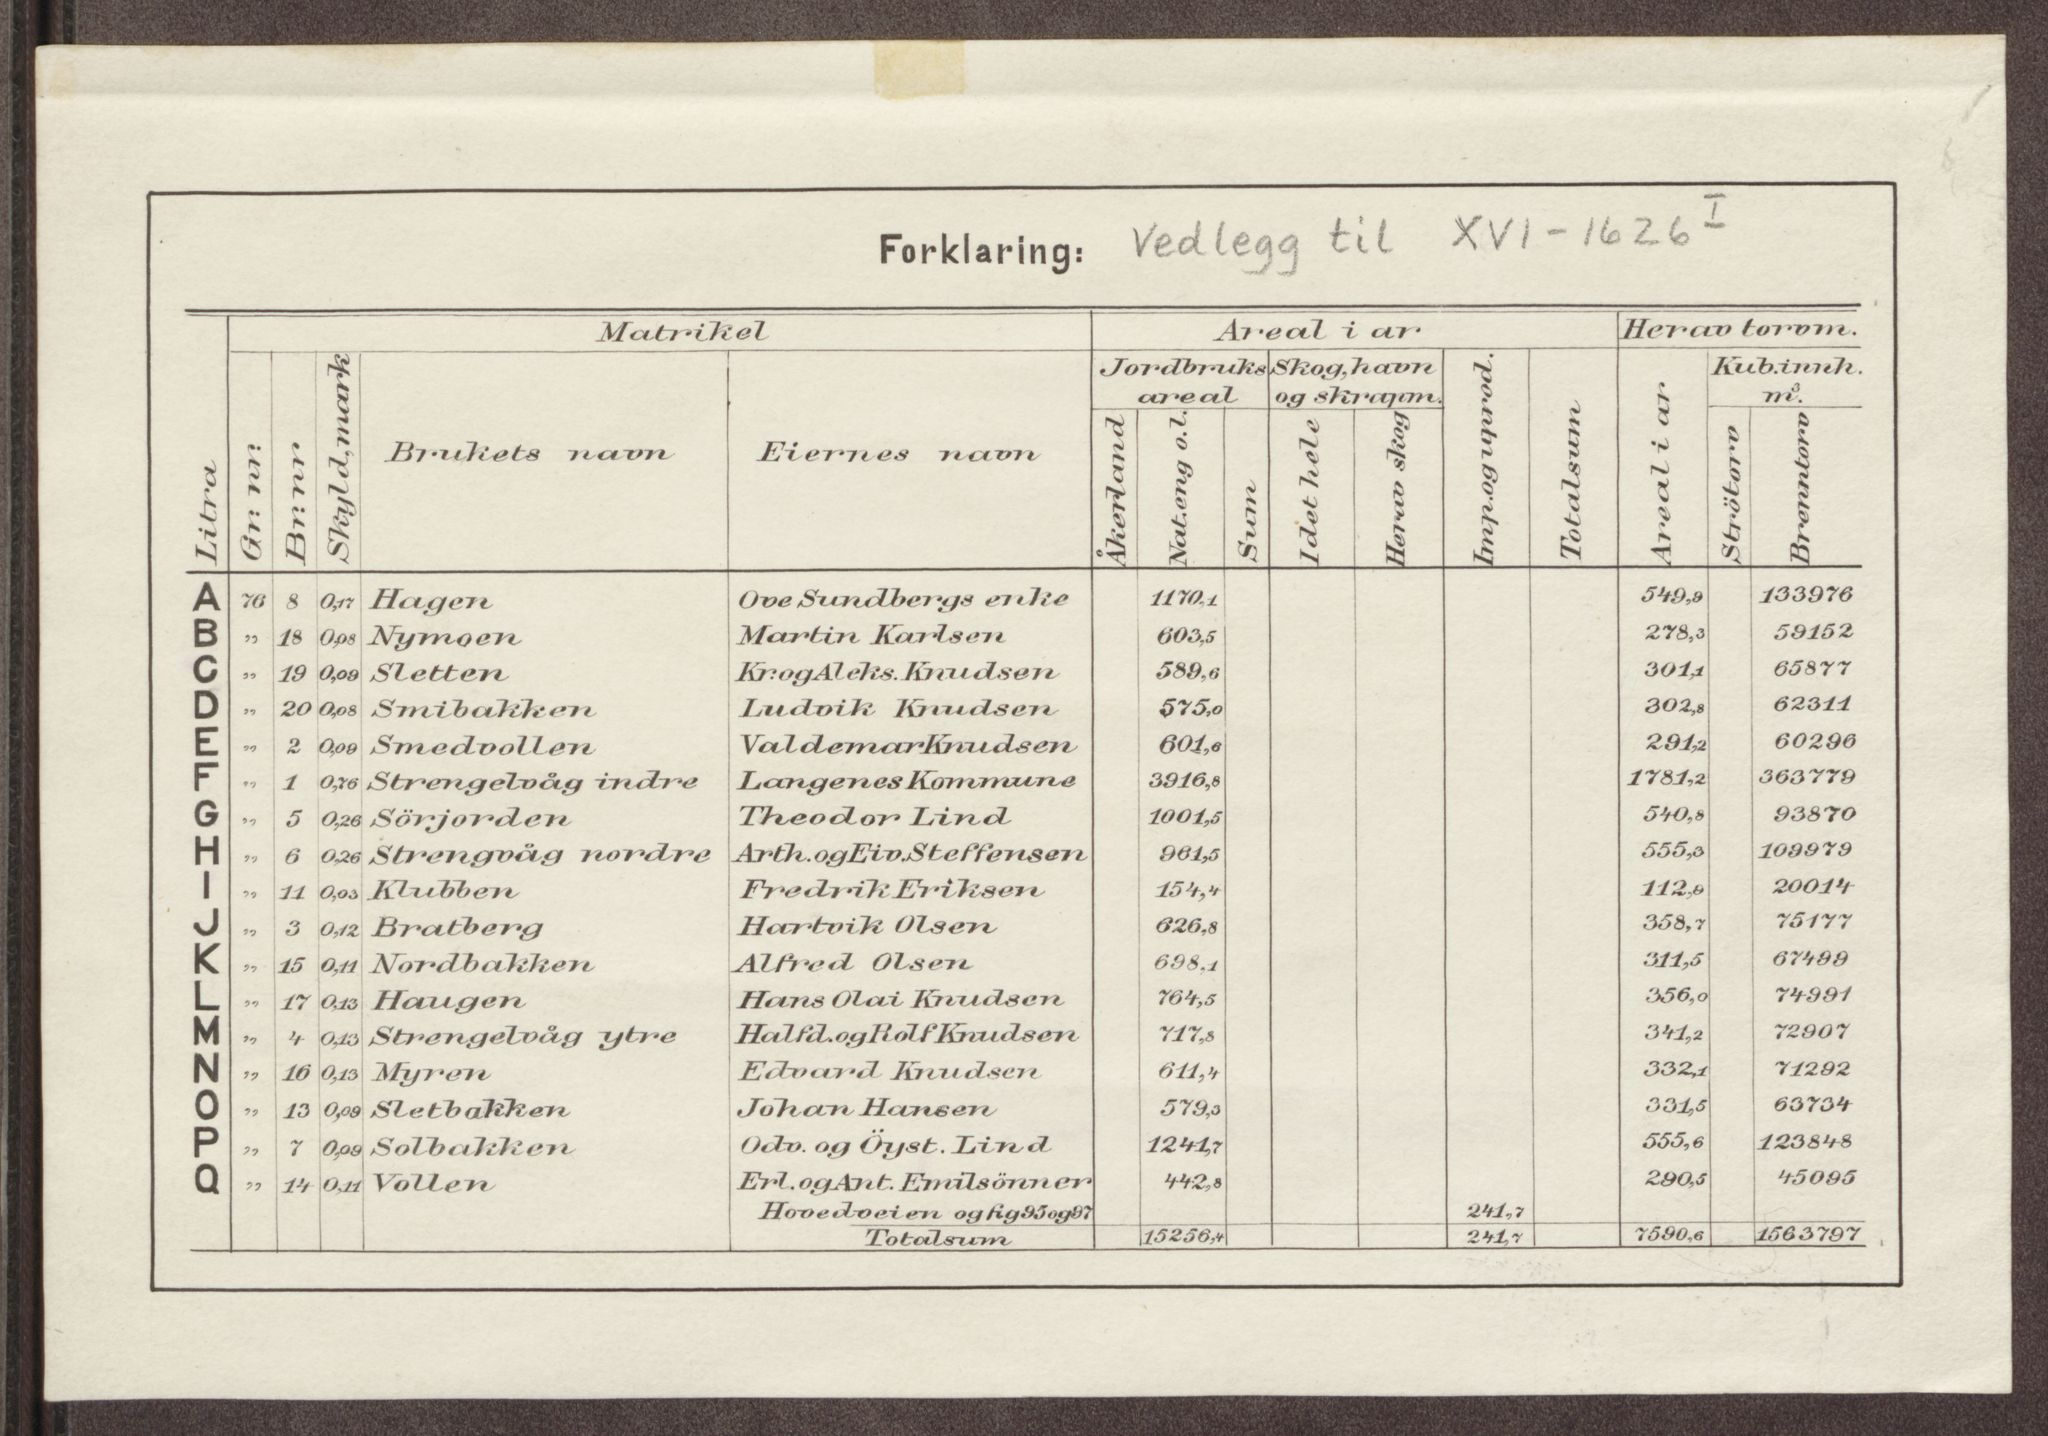 Forklaring: Vedlegg til XVI-1626 I
Matrikel Areal i ar Herav torvm.
Litra Gr: nr: Br: nr Skyld, mark Brukets navn Eiernes navn Jordbruks areal Åkerland Nat.eng o.l. Sum Skog, havn og skrapm. I det hele Herav skog Imp. og uprod. Totalsum Areal i ar Kub.innh. m³. Strötorv Brenntorv
A 76 8 0,17 Hagen Ove Sundbergs enke 1170,1 549,9 133976
B „ 18 0,08 Nymoen Martin Karlsen 603,5 278,3 59152
C „ 19 0,09 Sletten Kr. og Aleks. Knudsen 589,6 301,1 65877
D „ 20 0,08 Smibakken Ludvik Knudsen 575,0 302,8 62311
E „ 2 0,09 Smedvollen Valdemar Knudsen 601,6 291,2 60296
F „ 1 0,76 Strengelvåg indre Langenes Kommune 3916,8 1781,2 363779
G „ 5 0,26 Sörjorden Theodor Lind 1001,5 540,8 93870
H „ 6 0,26 Strengvåg nordre Arth. og Eiv. Steffensen 961,5 555,3 109979
I „ 11 0,03 Klubben Fredrik Eriksen 154,4 112,9 20014
J „ 3 0,12 Bratberg Hartvik Olsen 626,8 358,7 75177
K „ 15 0,11 Nordbakken Alfred Olsen 698,1 311,5 67499
L „ 17 0,13 Haugen Hans Olai Knudsen 764,5 356,0 74991
M „ 4 0,13 Strengelvåg ytre Halfd. og Rolf Knudsen 717,8 341,2 72907
N „ 16 0,13 Myren Edvard Knudsen 611,4 332,1 71292
O „ 13 0,09 Sletbakken Johan Hansen 579,3 331,5 63734
P „ 7 0,09 Solbakken Odv. og Öyst. Lind 1241,7 555,6 123848
Q „ 14 0,11 Vollen Erl. og Ant. Emilsönner 442,8 290,5 45095
Hovedveien og fig 95 og 97 241,7
Totalsum 15256,4 241,7 7590,6 1563797